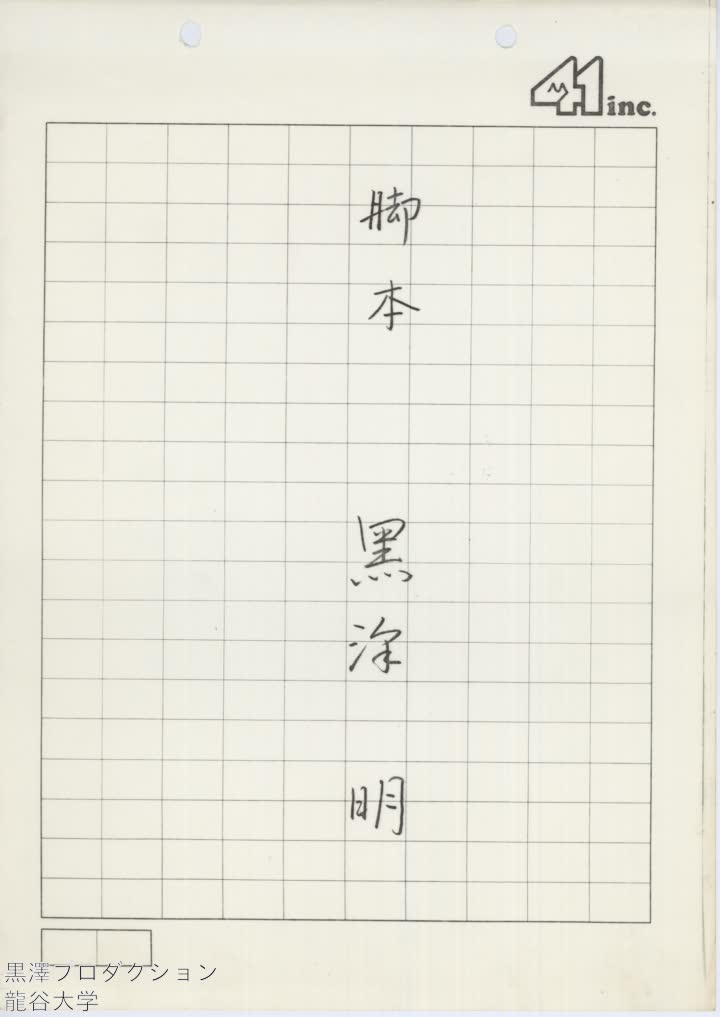 41 inc.
脚本 黒澤 明
黒澤プロダクション
龍谷大学